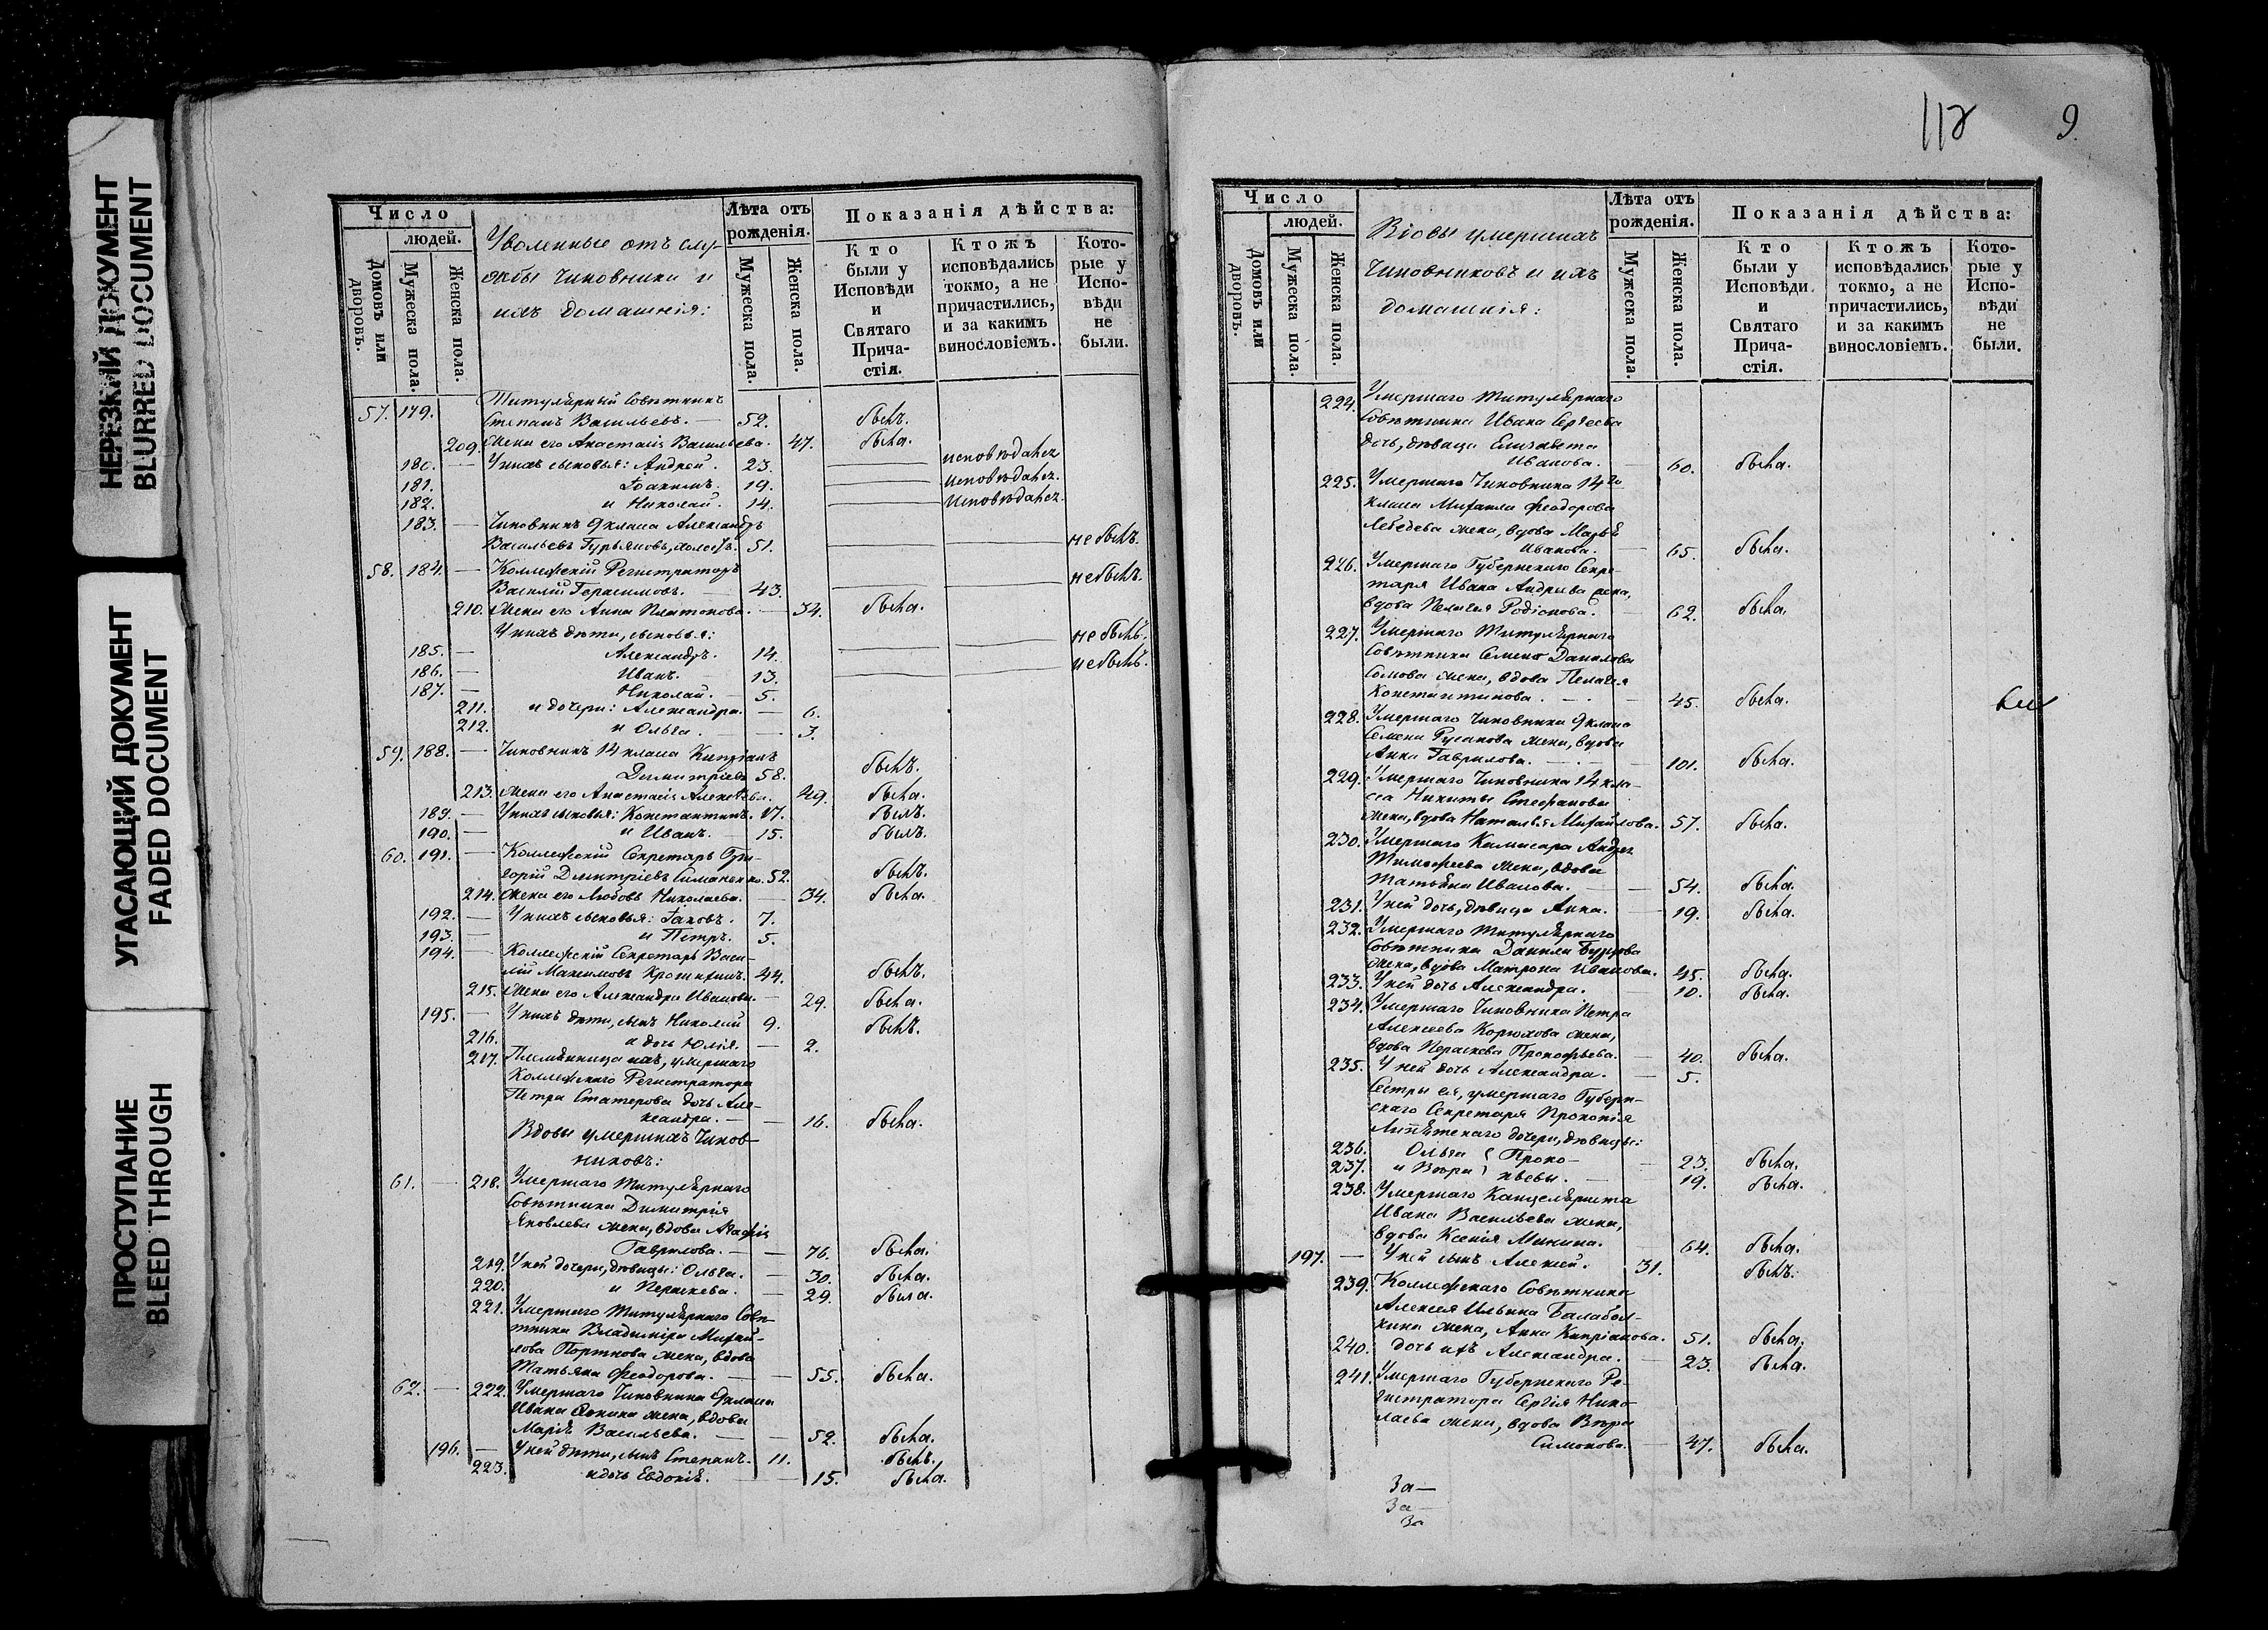 НЕРЕЗКИЙ ДОКУМЕНТ
BLURRED DOCUMENT
УГАСАЮЩИЙ ДОКУМЕНТ
FADED DOCUMENT
ПРОСТУПАНИЕ
BLEED THROUGH
Число
людей.
Домовъ или дворовъ.
Мужеска пола.
Женска пола.
Уволенные отъ слу-
жбы чиновники и
ихъ домашнія:
Лѣта отъ рожденія.
Мужеска пола.
Женска пола.
Показанія дѣйства:
Кто были у Исповѣди и Святаго Прича-стія.
Ктожъ исповѣдались токмо, а не причастились, и за какимъ винословіемъ.
Кото-рые у Испо-вѣди не были.
57. 179. Титулярный Совѣтникъ
Степанъ Васильевъ. — 52. былъ.
209. Жена его Анастасія Васильева. 47. была.
180. — У нихъ сыновья: Андрей. 23. исповѣдалсѧ
181. Іоакимъ. 19. исповѣдалсѧ.
182. и Николай. 14. исповѣдалсѧ.
183. — Чиновникъ 9 класа Александръ
Васильевъ Гурьяновъ, холостъ. 51. не былъ.
58. 184. — Коллежскій Регистраторъ
Василій Герасимовъ. 43. не былъ.
210. Жена его Анна Платонова. — 34. была.
У нихъ дѣти, сыновья:
185. — Александръ. 14. не былъ.
186. — Иванъ. 13. не былъ.
187. — Николай. 5.
211. и дочери: Александра. — 6.
212. и Ольга. — 3.
59. 188. — Чиновникъ 14 класа Кипріанъ
Димитріевъ 58. былъ.
213. Жена его Анастасія Алексѣева. 49. была.
189. — У нихъ сыновья: Константинъ. 17. былъ.
190. — и Иванъ. 15. былъ.
60. 191. — Коллежскій Секретарь Гри-
горій Димитріевъ Симаненко. 52. былъ.
214. Жена его Любовь Николаева. — 34. была.
192. — У нихъ сыновья: Іаковъ. 7.
193. — и Петръ. 5.
194. — Коллежскій Секретарь Васи-
лій Максимовъ 44. былъ.
215. Жена его Александра Иванова. — 29. была.
195. — У нихъ дѣти, сынъ Николай 9. былъ.
216. и дочь Юлія. — 2.
217. Племянница ихъ, умершаго
Коллежскаго Регистратора
Петра Статерова дочь Але-
ксандра. — 16. была.
Вдовы умершихъ чинов-
никовъ:
61. — 218. Умершаго Титулярнаго
Совѣтника Димитрія
Яковлева жена, вдова Агафія
Гаврилова. — 76. была.
219. У ней дочери, дѣвицы: Ольга. — 30. была.
220. и Параскева. — 29. была.
221. Умершаго Титулярнаго Совѣ-
тника Владиміра Михай-
лова Портнова жена, вдова
Татьяна Феодорова. — 55. была.
62. — 222. Умершаго Чиновника 9 класа
Ивана жена, вдова
Марія Васильева. — 52. была.
196. — У ней дѣти, сынъ Степанъ. 11. былъ.
223. и дочь Евдокія. — 15. была.
112 9.
Число
людей.
Домовъ или дворовъ.
Мужеска пола.
Женска пола.
Вдовы умершихъ
Чиновниковъ и ихъ
домашнія:
Лѣта отъ рожденія.
Мужеска пола.
Женска пола.
Показанія дѣйства:
Кто были у Исповѣди и Святаго Прича-стія.
Ктожъ исповѣдались токмо, а не причастились, и за какимъ винословіемъ.
Кото-рые у Испо-вѣди не были.
224. Умершаго Титулярнаго
Совѣтника Ивана Сергеева
дочь, дѣвица Елизавета
Иванова. — 60. была.
225. Умершаго Чиновника 14го
класа Михаила Феодорова
Лебедева жена, вдова Марья
Иванова. — 65. была.
226. Умершаго Губернскаго Секре-
таря Ивана Андреева жена,
вдова Пелагея Родіонова. 62. была.
227. Умершаго Титулярнаго
Совѣтника Семена Данилова
Сомова жена, вдова Пелагея
Константинова. — 45. была.
228. Умершаго Чиновника 9 класа
Семена Русанова жена, вдова
Анна Гаврилова. — 101. была.
229. Умершаго Чиновника 14 кла-
са Никиты Стефанова
жена, вдова Наталья Михайлова. 57. была.
230. Умершаго Комисара Андрея
Тимофеева жена, вдова
Татьяна Иванова. — 54. была.
231. У ней дочь, дѣвица Анна. 19. была.
232. Умершаго Титулярнаго
Совѣтника Данила Бурцова
жена, вдова Матрона Иванова. 45. была.
233. У ней дочь Александра. 10. была.
234. Умершаго Чиновника Петра
Алексеева Корюхова жена,
вдова Параскева Прокофьева. — 40. была.
235. У ней дочь Александра. — 5.
Сестры ея, умершаго Губерн-
скаго Секретаря Прокопія
дочери, дѣвицы:
236. Ольга } Проко- — 23. была.
237. и Вѣра } пьевы. — 19. была.
238. Умершаго Канцеляриста
Ивана Васильева жена,
вдова Ксенія Минина. 64. была.
197. — У ней сынъ Алексей. 31. былъ.
239. Коллежскаго Совѣтника
Алексея Ильина Балабол-
кина жена, Анна Кипріанова. 51. была.
240. дочь ихъ Александра. — 23. была.
241. Умершаго Губернскаго Ре-
гистратора Сергія Нико-
лаева жена, вдова Вѣра
Симонова. — 47. была.
За—
За—
За